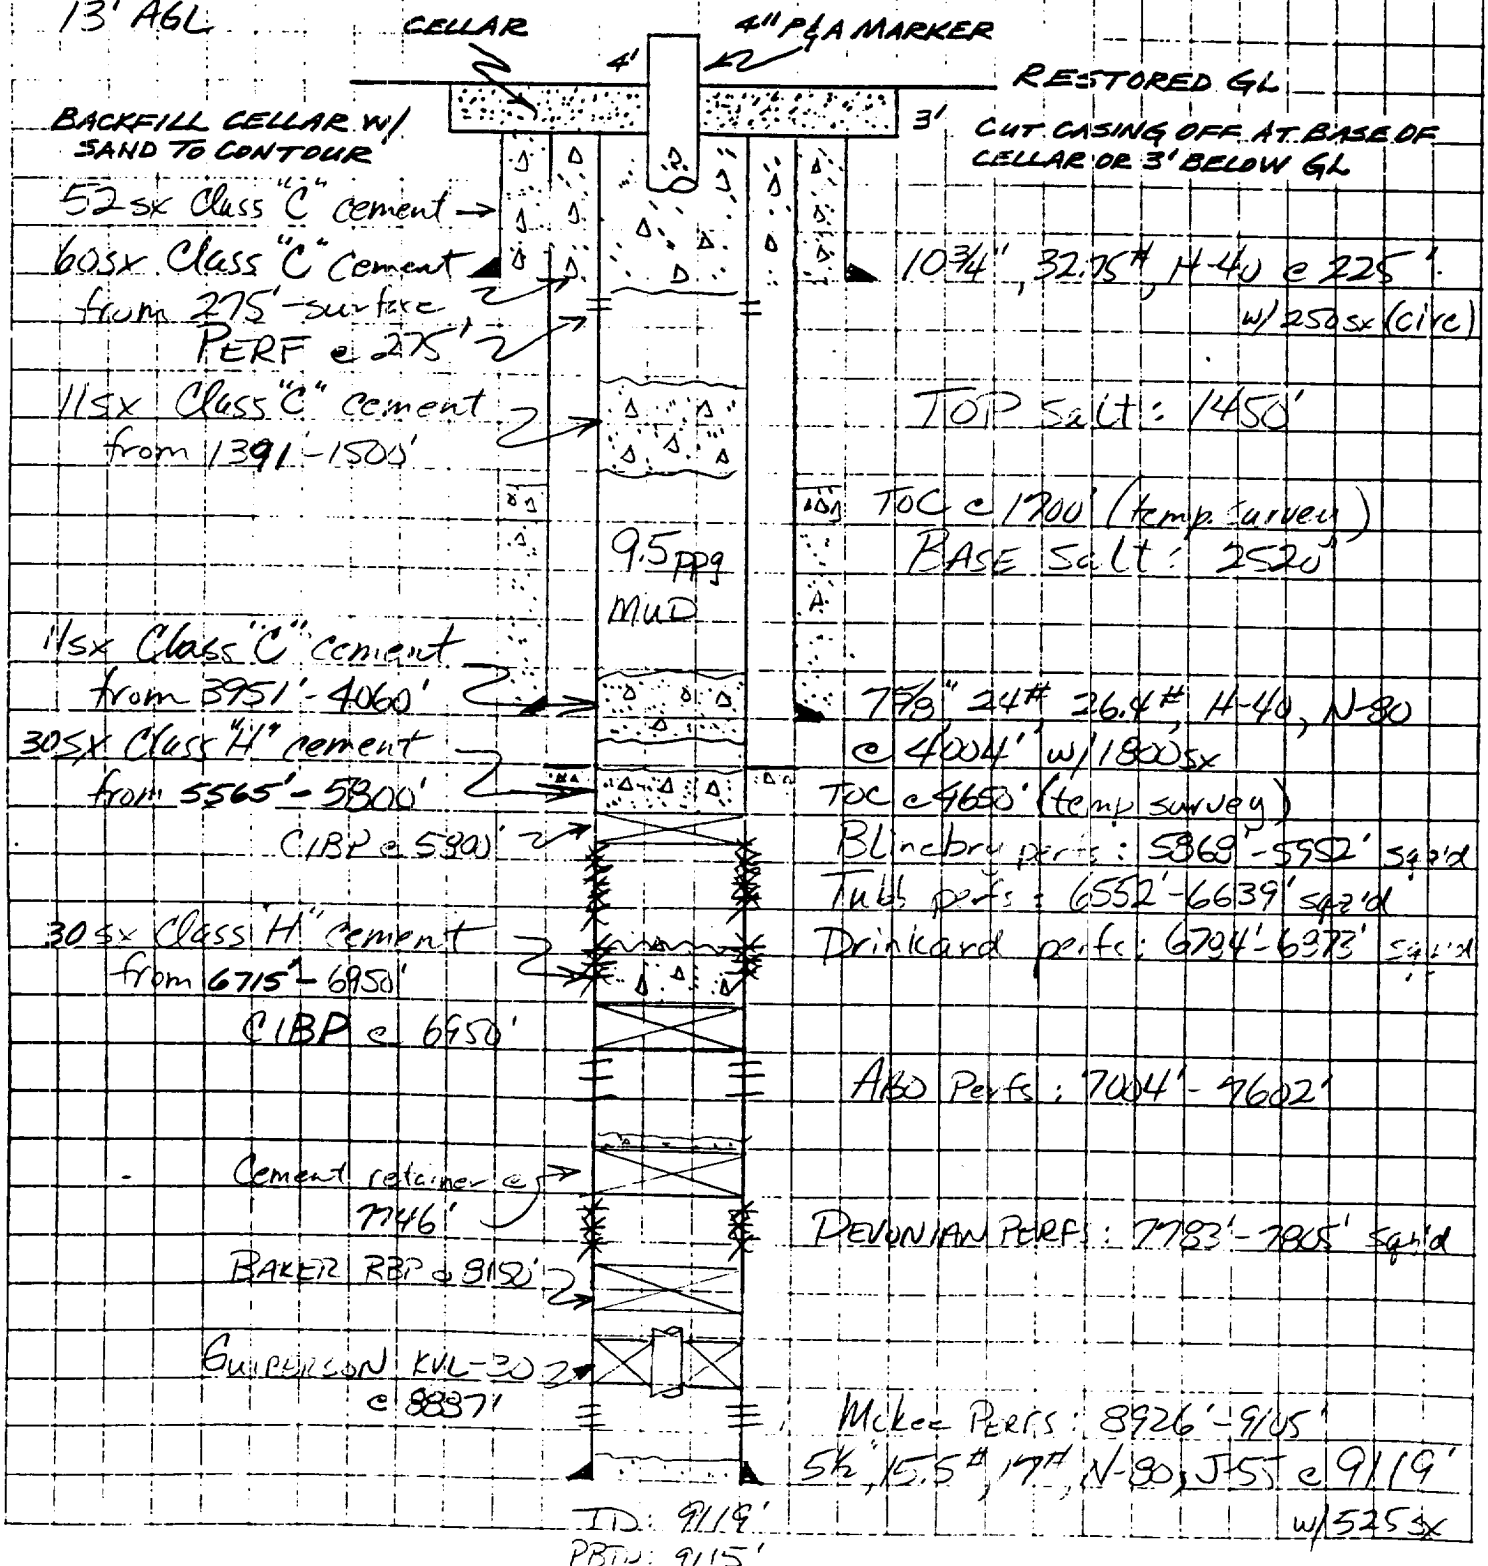 13' AGL
CELLAR
4" P&A MARKER
4'
RESTORED GL
BACKFILL CELLAR W/
SAND TO CONTOUR
3'
CUT CASING OFF AT BASE OF
CELLAR OR 3' BELOW GL
52 sx Class "C" cement
60sx Class "C" Cement
from 275'-surface
PERF @ 275'
10 3/4", 32.75#, H-40 @ 225'
w/ 250sx (circ)
11sx Class "C" cement
from 1391'-1500'
TOP Salt: 1450'
TOC @ 1700' (temp. survey)
BASE Salt: 2520'
9.5 ppg
MUD
11sx Class "C" cement
from 3951'-4060'
7 5/8", 24#, 26.4#, H-40, N-80
@ 4004' w/ 1800sx
30sx Class "H" cement
from 5565'-5800'
TOC @ 4650' (temp survey)
CIBP @ 5800'
Blinebry perfs: 5868'-5952' sqz'd
Tubb perfs: 6552'-6639' sqz'd
Drinkard perfs: 6794'- sqz'd
30 sx Class "H" cement
from 6715'-6950'
CIBP @ 6950'
ABO Perfs: 7004'-7602'
Cement retainer @
7746'
DEVONIAN PERFS: 7783'-7805' sqz'd
BAKER RBP @ 8150'
KVL-30
@ 8887'
McKee PERFS: 8926'-9105'
5 1/2", 15.5#, 17#, N-80, J-55 @ 9119'
w/ 525 sx
TD: 9119'
PBTD: 9115'